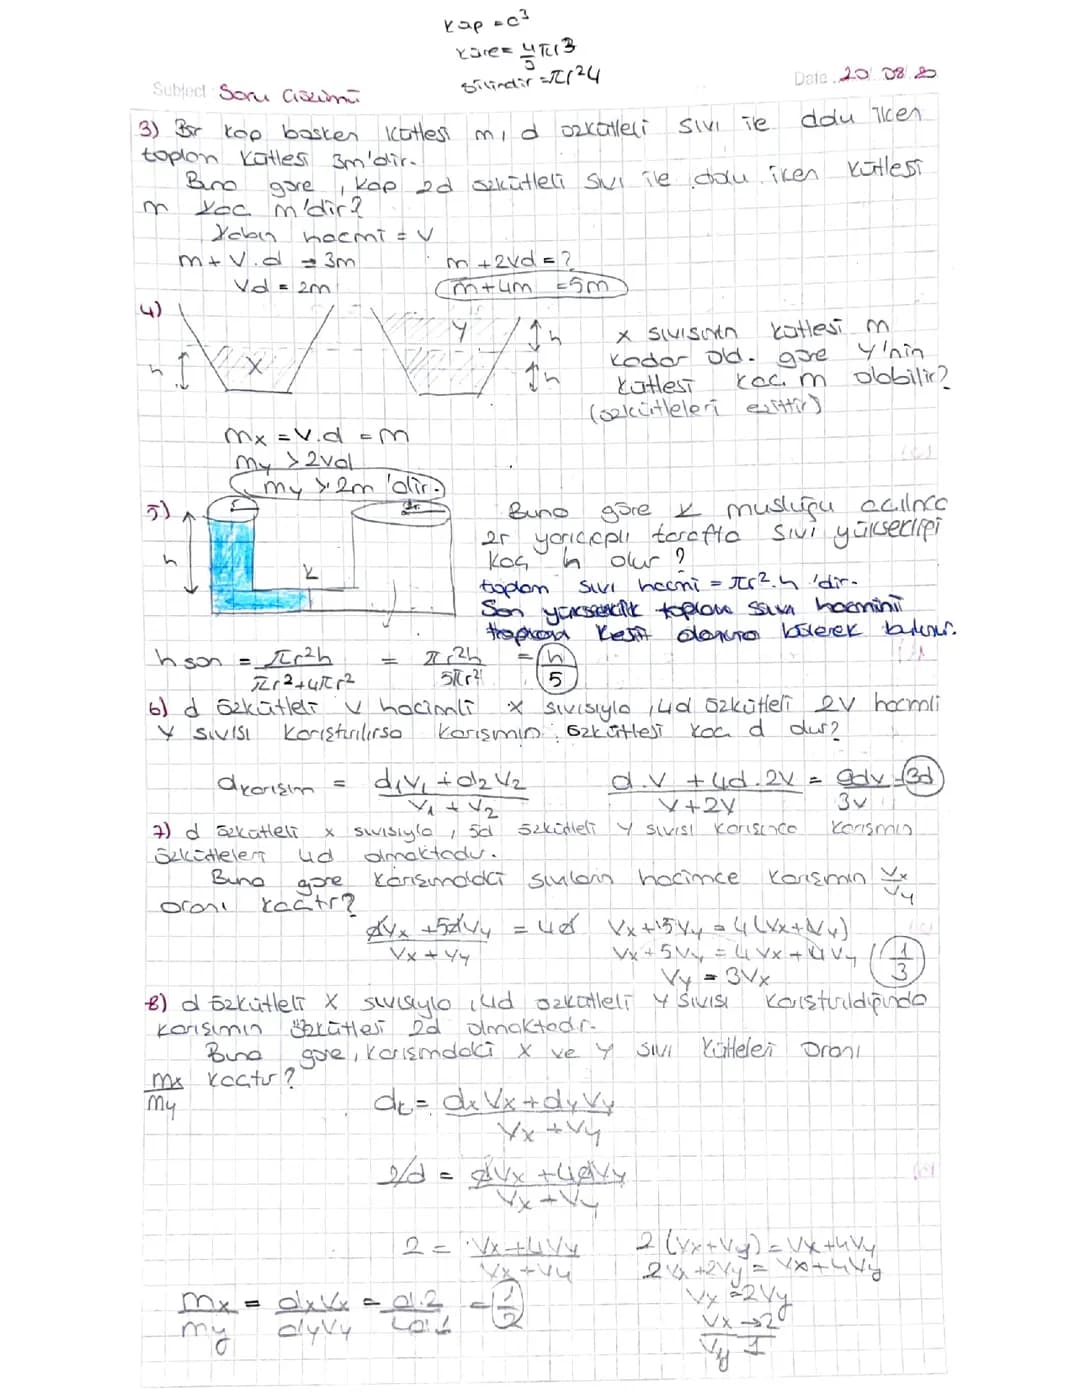 Küp = c³
Küre = 4/3 πr³
Silindir = πr²h
Subject Soru Çözümü
Date 20 08 20
3) Bir kap boşken kütlesi m, d özkütleli sıvı ile dolu iken
toplam kütlesi 3m'dir.
Buna göre, kap 2d özkütleli sıvı ile dolu iken kütlesi
m kaç m'dir?
Kabın hacmi = V
m + V.d = 3m
m + 2Vd = ?
Vd = 2m
m + 4m = 5m
4)
h
X
Y
h
h
x sıvısının kütlesi m
kadar old. göre Y'nin
kütlesi kaç m olabilir?
(özkütleleri eşittir)
mx = V.d = m
my > 2Vd
my > 2m 'dir.
5)
h
r
2r
K
Buna göre K musluğu açılınca
2r yarıçaplı tarafta sıvı yüksekliği
kaç h olur?
toplam sıvı hacmi = πr².h 'dir.
Son yükseklik toplam sıvı hacmini
toplam kesit alanına bölerek bulunur.
h son = πr²h / πr²+4πr² = πr²h / 5πr² = h/5
6) d özkütleli V hacimli x sıvısıyla, 4d özkütleli 2V hacimli
Y sıvısı karıştırılırsa karışımın özkütlesi kaç d dur?
dkarışım = d₁V₁ + d₂V₂ / V₁ + V₂
d.V + 4d.2V / V+2V = 9dV / 3V = 3d
7) d özkütleli x sıvısıyla, 5d özkütleli Y sıvısı karışınca karışımın
özkütleleri 4d olmaktadır.
Buna göre karışımdaki sıvıların hacimce karışımın Vx / Vy
oranı kaçtır?
dVx + 5dVy / Vx + Vy = 4d
Vx + 5Vy = 4(Vx+Vy)
Vx + 5Vy = 4Vx + 4Vy
1/3
Vy = 3Vx
8) d özkütleli X sıvısıyla, 4d özkütleli Y sıvısı karıştırıldığında
karışımın özkütlesi 2d olmaktadır.
Buna göre, karışımdaki x ve y sıvı kütleleri oranı
mx / my kaçtır?
dt = dxVx + dyVy / Vx + Vy
2d = dVx + 4dVy / Vx + Vy
2 = Vx + 4Vy / Vx + Vy
2(Vx+Vy) = Vx+4Vy
2Vx + 2Vy = Vx + 4Vy
Vx = 2Vy
Vx → 2
Vy 1
mx / my = dxVx / dyVy = d.2 / 4d.1 = 1/2